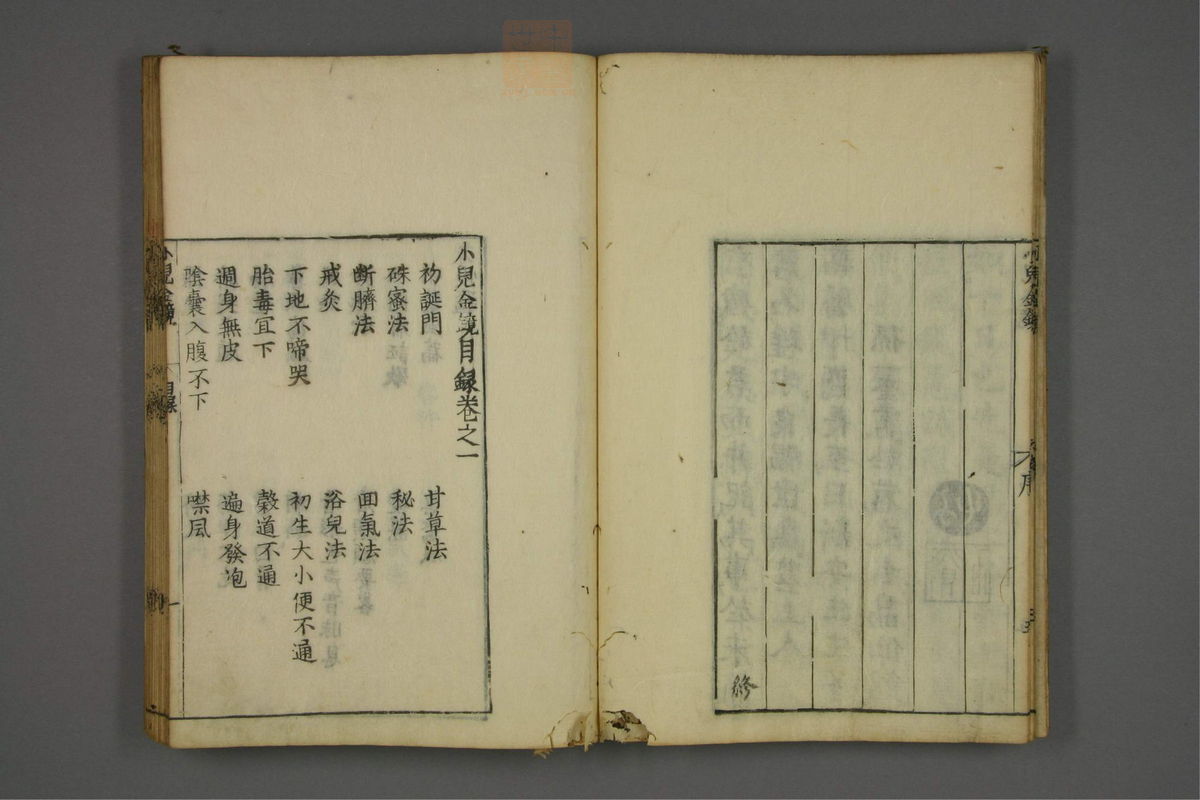 修
序
小兒金鏡目録卷之一
初誕門
甘草法
硃蜜法
秘法
断臍法
囬氣法
戒灸
浴兒法
下地不啼哭
初生大小便不通
胎毒宜下
糓道不通
週身無皮
遍身發泡
陰囊入腹不下
噤風
小兒金鏡
目録
一